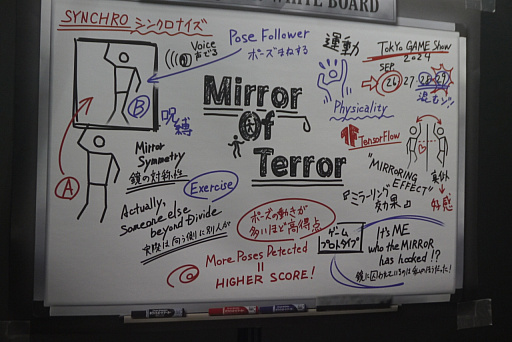 WHITE BOARD
SYNCHRO シンクロナイズ
Voice
声でる
Pose Follower
ポーズまねする
運動
Physicality
TOKYO GAME SHOW
2024
SEP.
26 27 28 29
B
呪縛
A
Mirror
Of
Terror
TensorFlow
Mirror
Symmetry
鏡の対称性
Exercise
"MIRRORING
EFFECT"
ミラーリング
効果
Actually,
Someone else
beyond Divide
実際は向う側に別人が
ポーズの動きが
多いほど高得点
More Poses Detected
=
HIGHER SCORE!
ゲーム
プロトタイプ
It's ME
who the MIRROR
has hooked!?